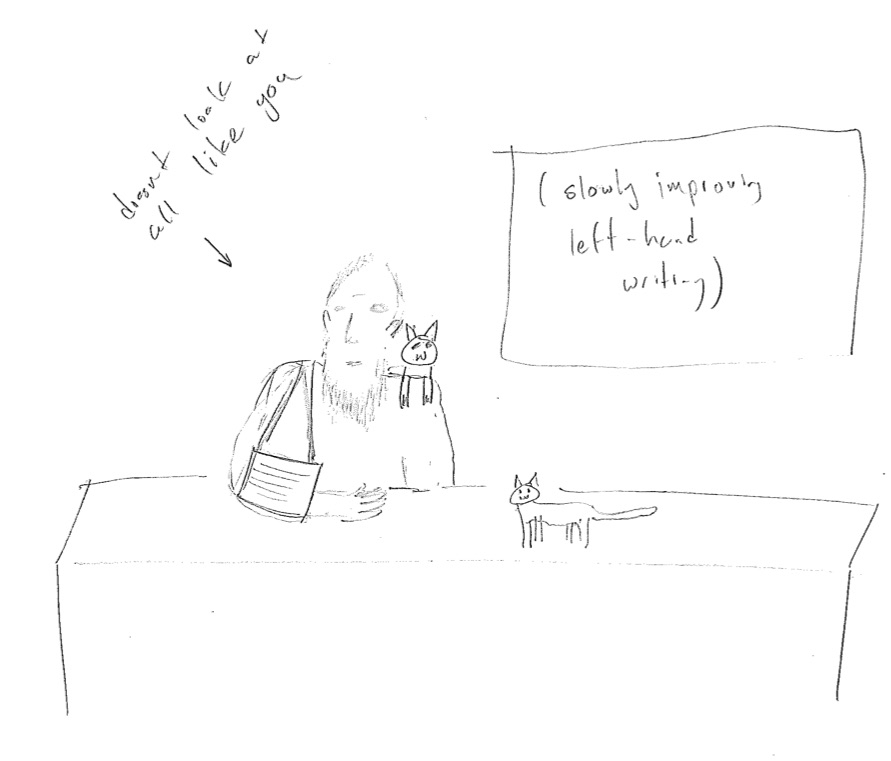 doesnt look at
all like you
(slowly improving
left-hand
writing)